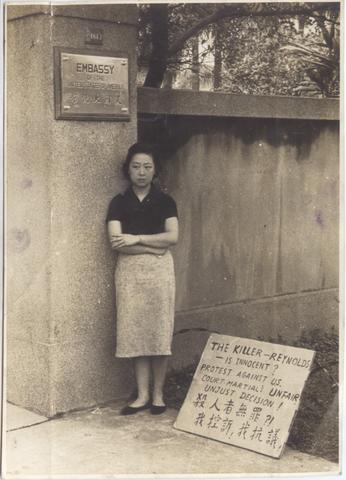 EMBASSY
OF THE
UNITED STATES OF AMERICA
THE KILLER-REYNOLDS
— IS INNOCENT?
PROTEST AGAINST U.S.
COURT MARTIAL'S UNFAIR
UNJUST DECISION!
殺人者無罪?!
我控訴,我抗議.